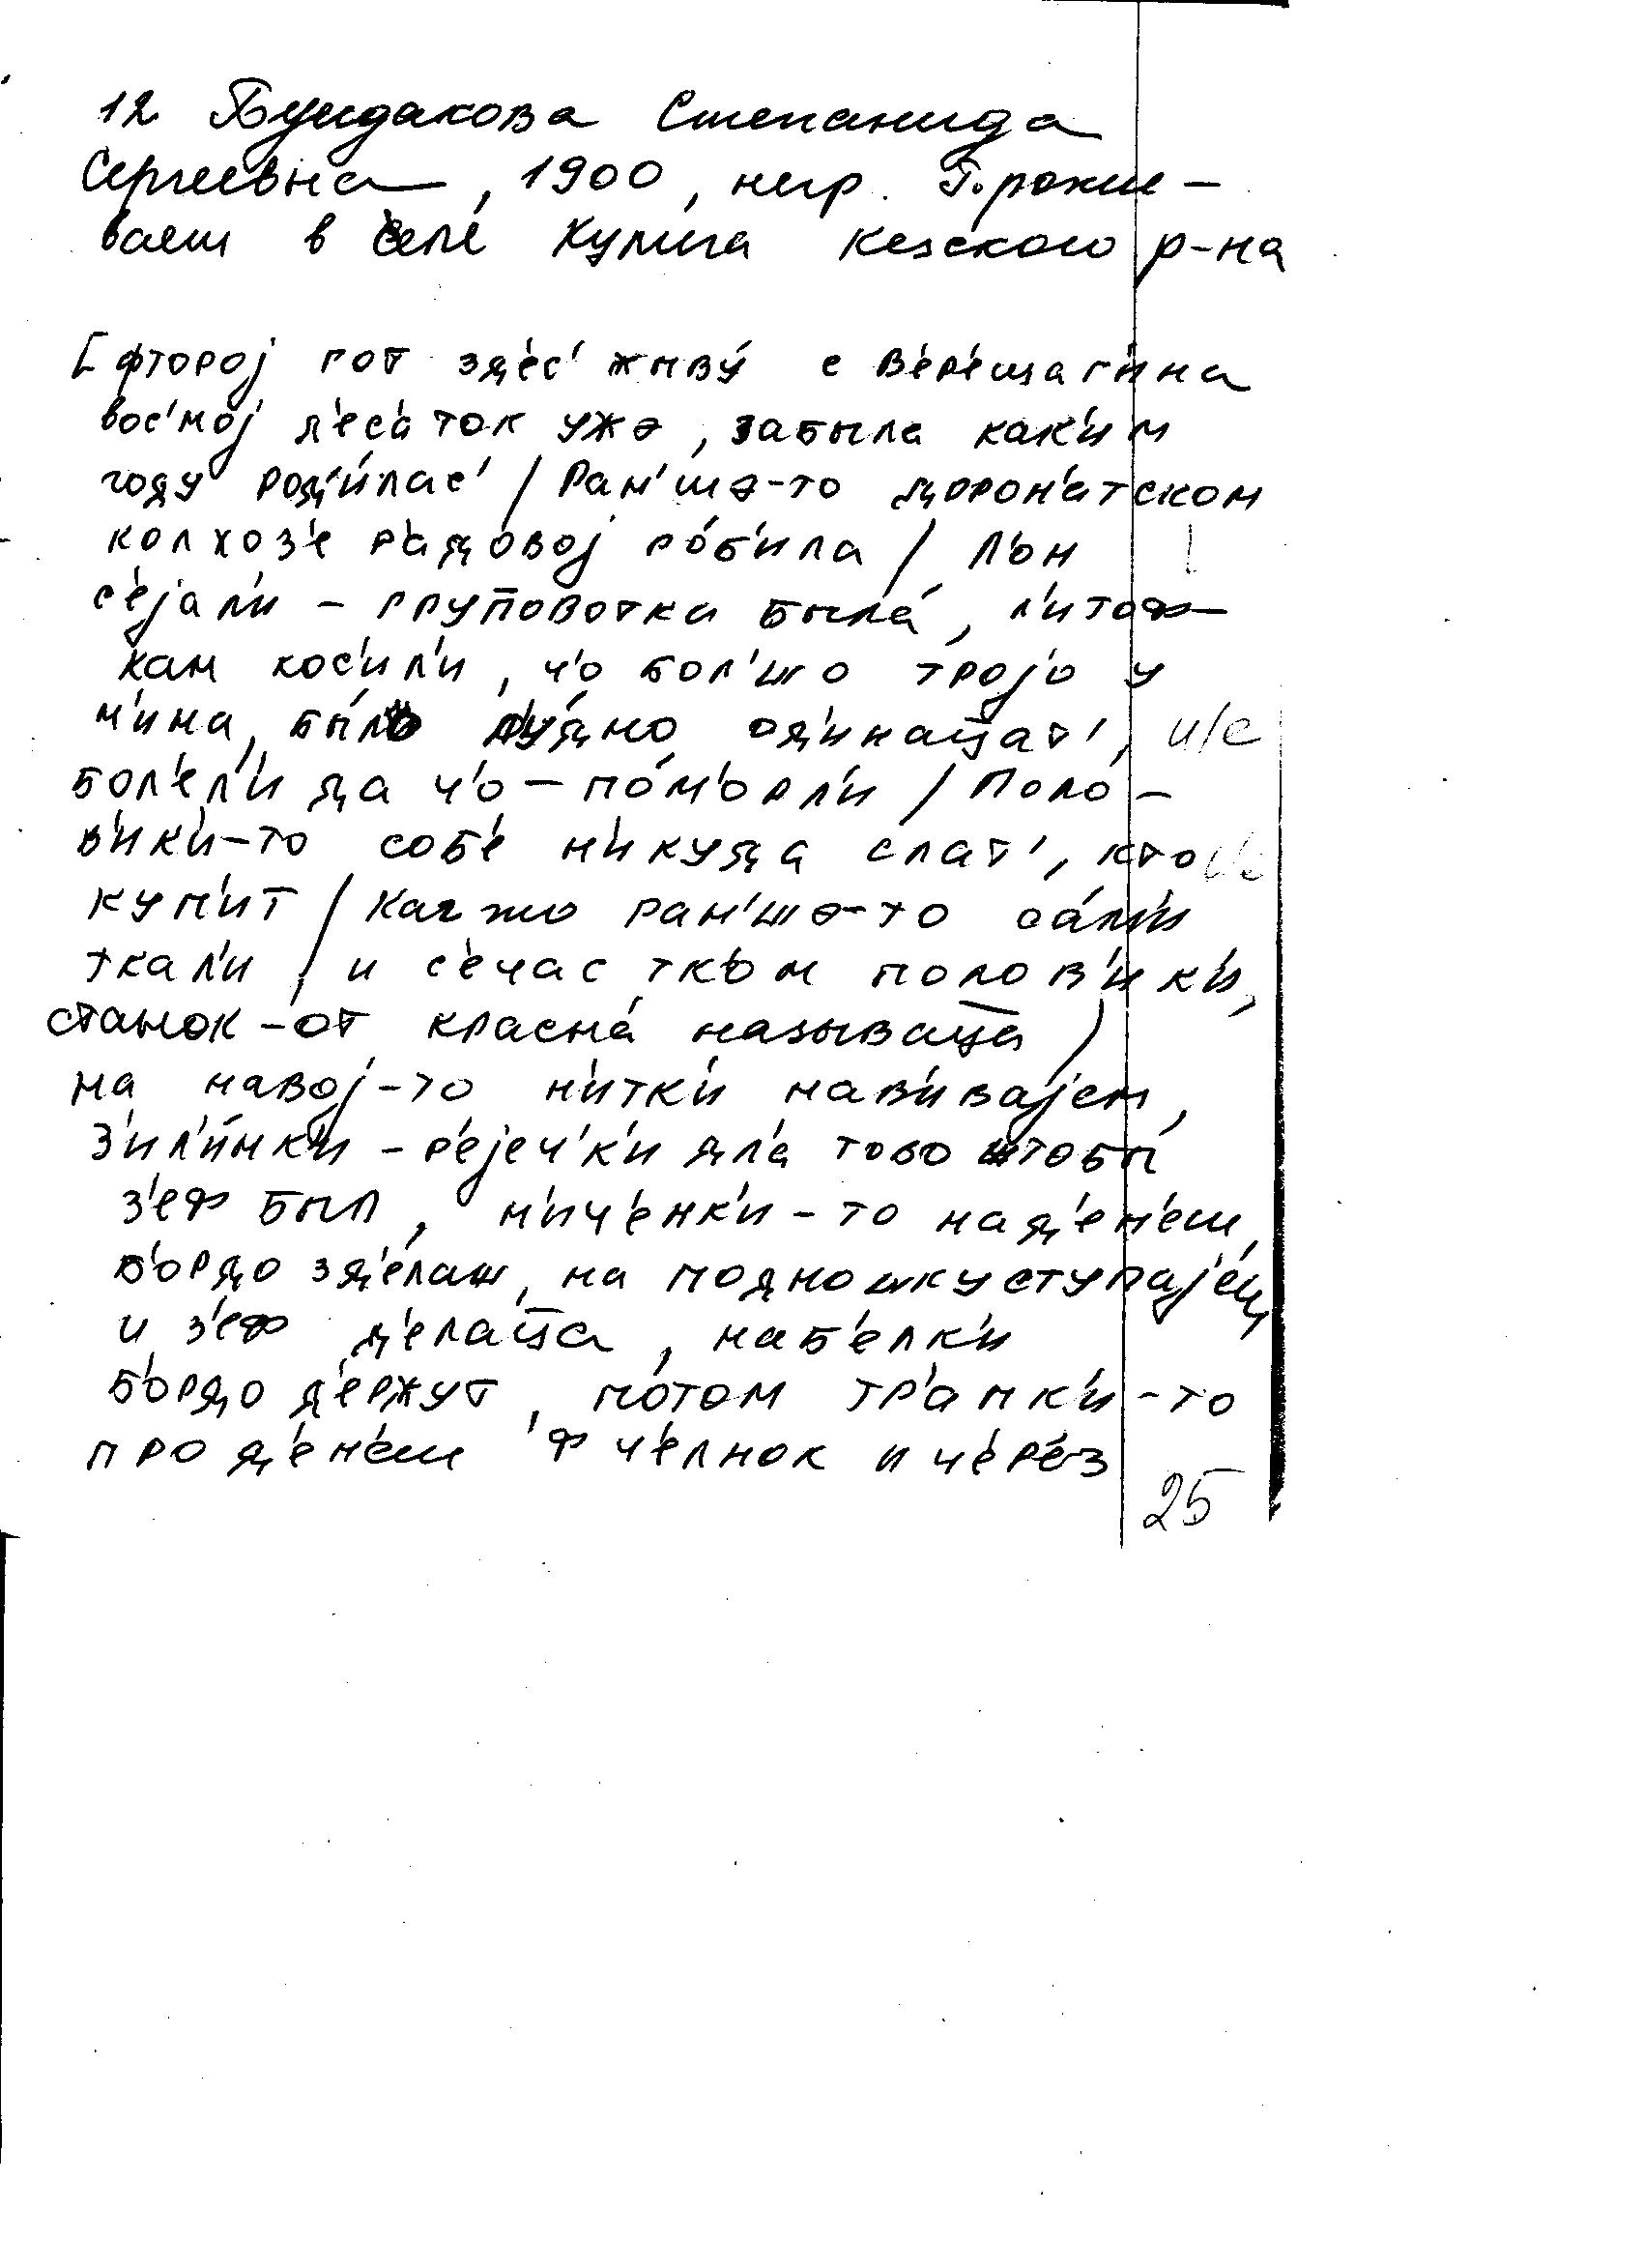 12 Бундакова Степанида
Сергеевна, 1900, негр. Прожи-
вает в селе Кулига Кезского р-на
[фторој гот з'д'ес' живу́ с В'ер'ещаг'ина
вос'мој д'ес'аток ужэ, забыла как'им
году род'илас' / Ран'шэ-то дорон'атском
колхоз'е р'адовој ро́б'ила / Л'он
с'ејал'и – групповотка была́, л'итоф-
кам кос'ил'и, ч'о бол'шо тројо у
м'ина, бы́ло одинаццат', и/е
бол'ел'и да ч'о – по́м'орл'и / Поло́-
в'ик'и-то соб'е никуда слат', кто
куп'ит / Как жо ран'шэ-то са́м'и
ткал'и, и с'ечас тк'ом полов'ик'и,
станок-от красна́ называцца /
на навој-то н'итк'и нав'ивајем,
з'ил'и́нк'и – р'ејеч'к'и дл'а тово штобы
з'еф был, н'ич'енк'и-то над'ен'еш,
б'ордо зд'елаш, на подношку ступајеш,
и з'еф д'елацца, наб'елк'и
б'ордо д'ержут, по́том тр'апк'и-то
прод'ен'еш ф ч'елнок и ч'ер'ез
25